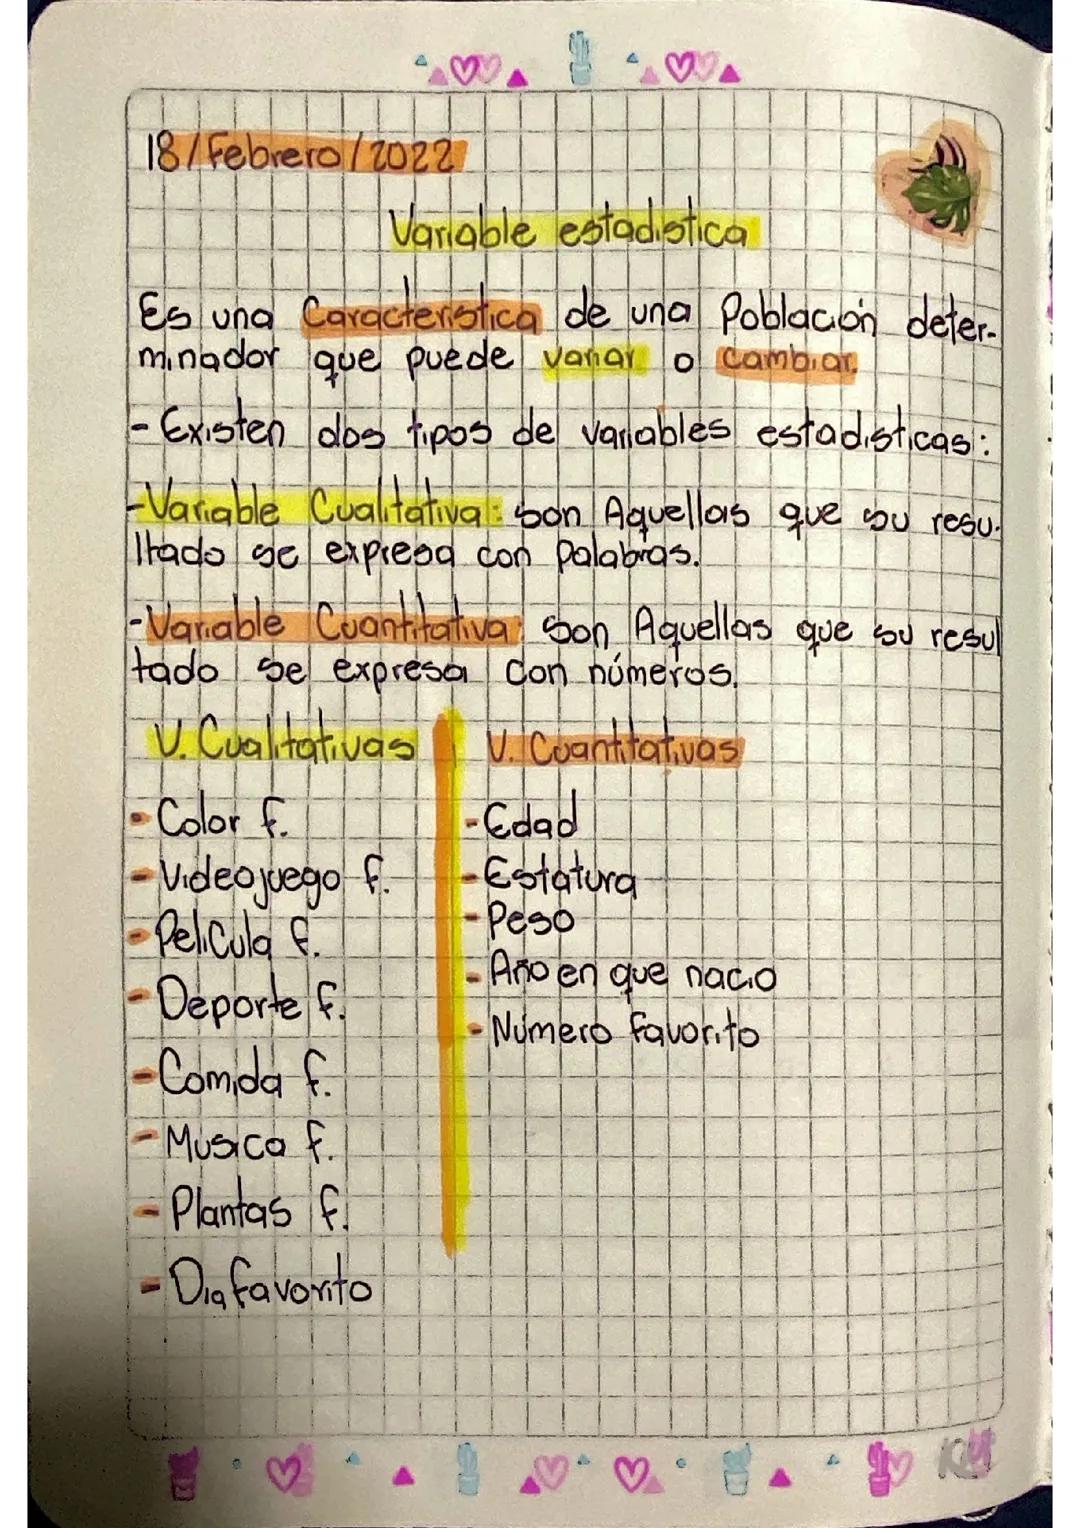 18/Febrero/2022
Variable estadistica
Es una Caracteristica de una Población deter-
minador que puede variar o cambiar.
- Existen dos tipos de variables estadisticas:
-Variable Cualitativa: son Aquellas que su resu-
ltado se expresa con palabras.
-Variable Cuantitativa: son Aquellas que su resul
tado se expresa con números.
V. Cualitativas
V. Cuantitativas
- Color f.
- Videojuego f.
- Pelicula f.
- Deporte f.
- Comida f.
- Musica f.
- Plantas f.
- Dia favorito
- Edad
- Estatura
- Peso
- Año en que nacio
- Número favorito
KM